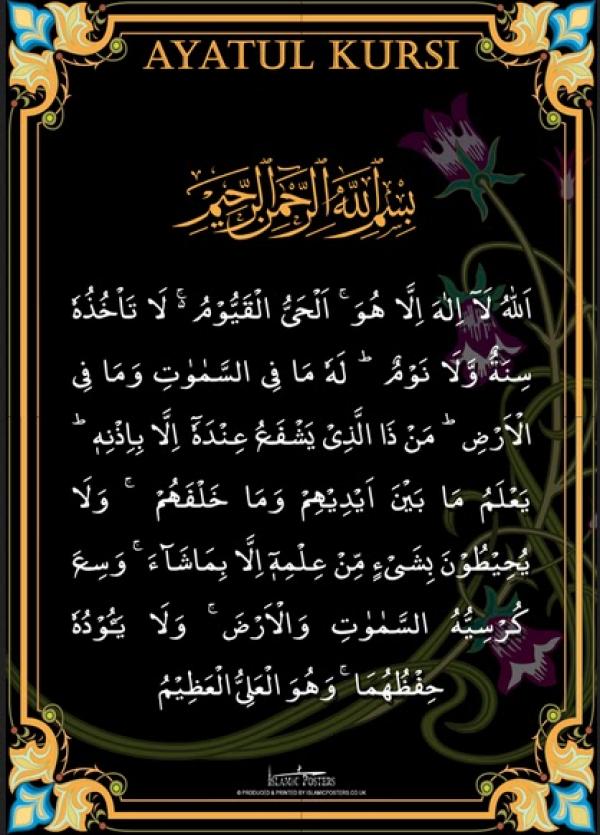 AYATUL KURSI
بِسْمِ اللّٰهِ الرَّحْمٰنِ الرَّحِيْمِ
اَللّٰهُ لَآ اِلٰهَ اِلَّا هُوَ ۚ اَلْحَیُّ الْقَیُّوْمُ ۬ۚ لَا تَاْخُذُهٗ
سِنَةٌ وَّلَا نَوْمٌ ؕ لَهٗ مَا فِی السَّمٰوٰتِ وَمَا فِی
الْاَرْضِ ؕ مَنْ ذَا الَّذِیْ یَشْفَعُ عِنْدَهٗۤ اِلَّا بِاِذْنِهٖ ؕ
یَعْلَمُ مَا بَیْنَ اَیْدِیْهِمْ وَمَا خَلْفَهُمْ ۚ وَلَا
یُحِیْطُوْنَ بِشَیْءٍ مِّنْ عِلْمِهٖۤ اِلَّا بِمَاشَآءَ ۚ وَسِعَ
كُرْسِیُّهُ السَّمٰوٰتِ وَالْاَرْضَ ۚ وَلَا یَـُٔوْدُهٗ
حِفْظُهُمَا ۚ وَهُوَ الْعَلِیُّ الْعَظِیْمُ
ISLAMIC POSTERS
© PRODUCED & PRINTED BY ISLAMICPOSTERS.CO.UK